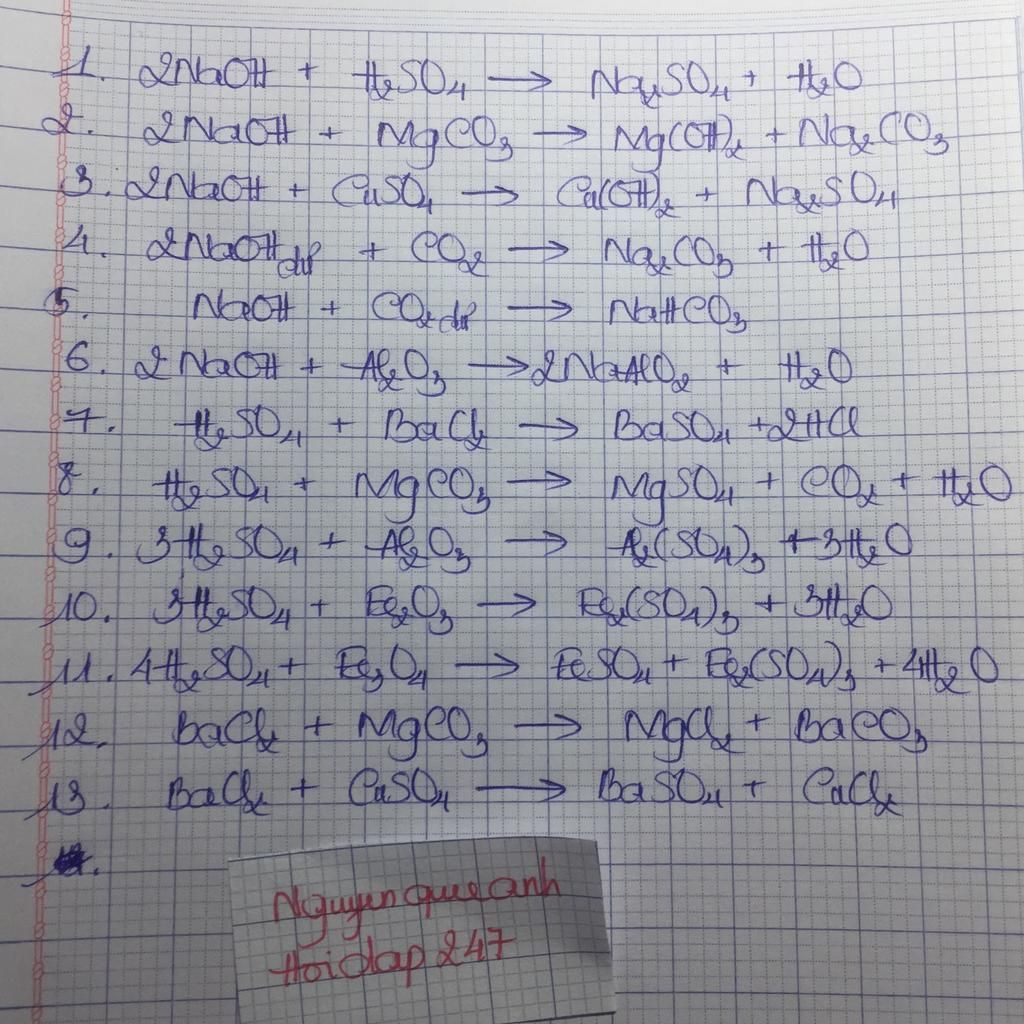 1. 2NaOH + H₂SO₄ → Na₂SO₄ + H₂O
2. 2NaOH + MgCO₃ → Mg(OH)₂ + Na₂CO₃
3. 2NaOH + CuSO₄ → Cu(OH)₂ + Na₂SO₄
4. 2NaOH dư + CO₂ → Na₂CO₃ + H₂O
5. NaOH + CO₂ dư → NaHCO₃
6. 2NaOH + Al₂O₃ → 2NaAlO₂ + H₂O
7. H₂SO₄ + BaCl₂ → BaSO₄ + 2HCl
8. H₂SO₄ + MgCO₃ → MgSO₄ + CO₂ + H₂O
9. 3H₂SO₄ + Al₂O₃ → Al₂(SO₄)₃ + 3H₂O
10. 3H₂SO₄ + Fe₂O₃ → Fe₂(SO₄)₃ + 3H₂O
11. 4H₂SO₄ + Fe₃O₄ → FeSO₄ + Fe₂(SO₄)₃ + 4H₂O
12. BaCl₂ + MgCO₃ → MgCl₂ + BaCO₃
13. BaCl₂ + CuSO₄ → BaSO₄ + CuCl₂
Nguyenqueanh
Hoidap247